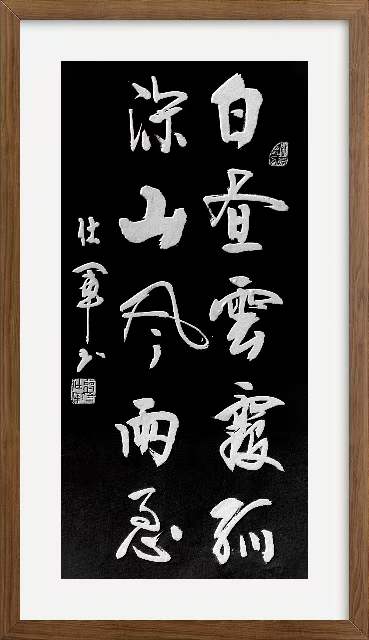 白昼雲霞孤
深山风雨急
仕軍书